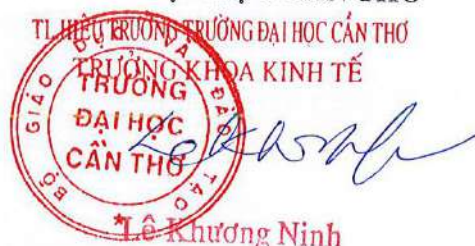 TL. HIỆU TRƯỞNG TRƯỜNG ĐẠI HỌC CẦN THƠ
TRƯỞNG KHOA KINH TẾ
BỘ GIÁO DỤC VÀ ĐÀO TẠO
TRƯỜNG
ĐẠI HỌC
CẦN THƠ
Lê Khương Ninh